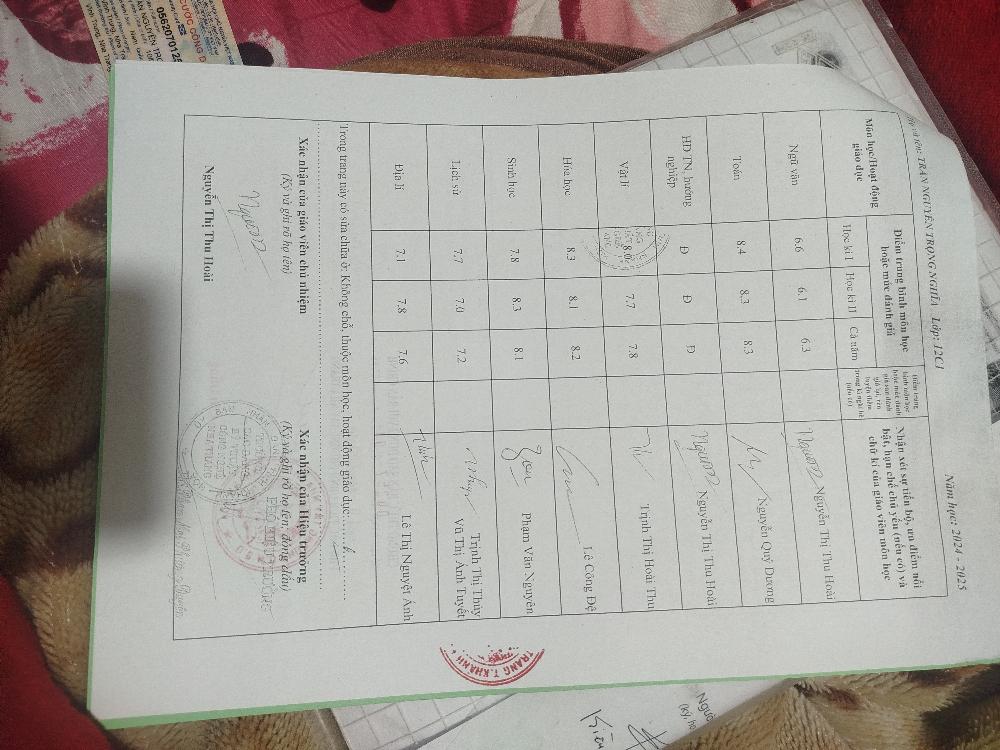 Họ và tên: TRẦN NGUYỄN TRỌNG NGHĨA Lớp: 12C1 Năm học: 2024 - 2025
Môn học/Hoạt động giáo dục
Điểm trung bình môn học hoặc mức đánh giá
Học kì I Học kì II Cả năm
Điểm trung bình môn học hoặc mức đánh giá sau đánh giá lại, rèn luyện thêm trong kì nghỉ hè (nếu có)
Nhận xét sự tiến bộ, ưu điểm nổi bật, hạn chế chủ yếu (nếu có) và chữ kí của giáo viên môn học
Ngữ văn 6.6 6.1 6.3 Nguyễn Thị Thu Hoài
Toán 8.4 8.3 8.3 Nguyễn Quý Dương
HĐ TN, hướng nghiệp Đ Đ Đ Nguyễn Thị Thu Hoài
Vật lí 8.0 7.7 7.8 Trịnh Thị Hoài Thu
Hóa học 8.3 8.1 8.2 Lê Công Đệ
Sinh học 7.8 8.3 8.1 Phạm Văn Nguyên
Lịch sử 7.7 7.0 7.2 Trịnh Thị Thúy
Vũ Thị Ánh Tuyết
Địa lí 7.1 7.8 7.6 Lê Thị Nguyệt Ánh
Trong trang này có sửa chữa ở: Không chỗ, thuộc môn học, hoạt động giáo dục:
Xác nhận của giáo viên chủ nhiệm
(Ký và ghi rõ họ tên)
Nguyễn Thị Thu Hoài
Xác nhận của Hiệu trưởng
(Ký và ghi rõ họ tên, đóng dấu)
PHÓ HIỆU TRƯỞNG
TRANG T. KHÁNH
0562070125